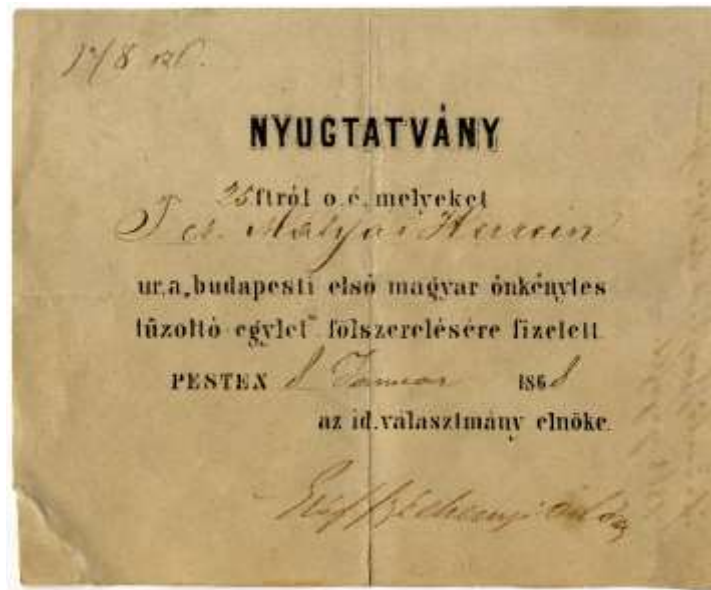 NYUGTATVÁNY
25 ftról o. é. melyeket
ur, a „budapesti első magyar önkénytes
tűzoltó egylet" fölszerelésére fizetett.
PESTEN 8 Januar 1868
az id. választmány elnöke.
Gróf Széchenyi Ödön